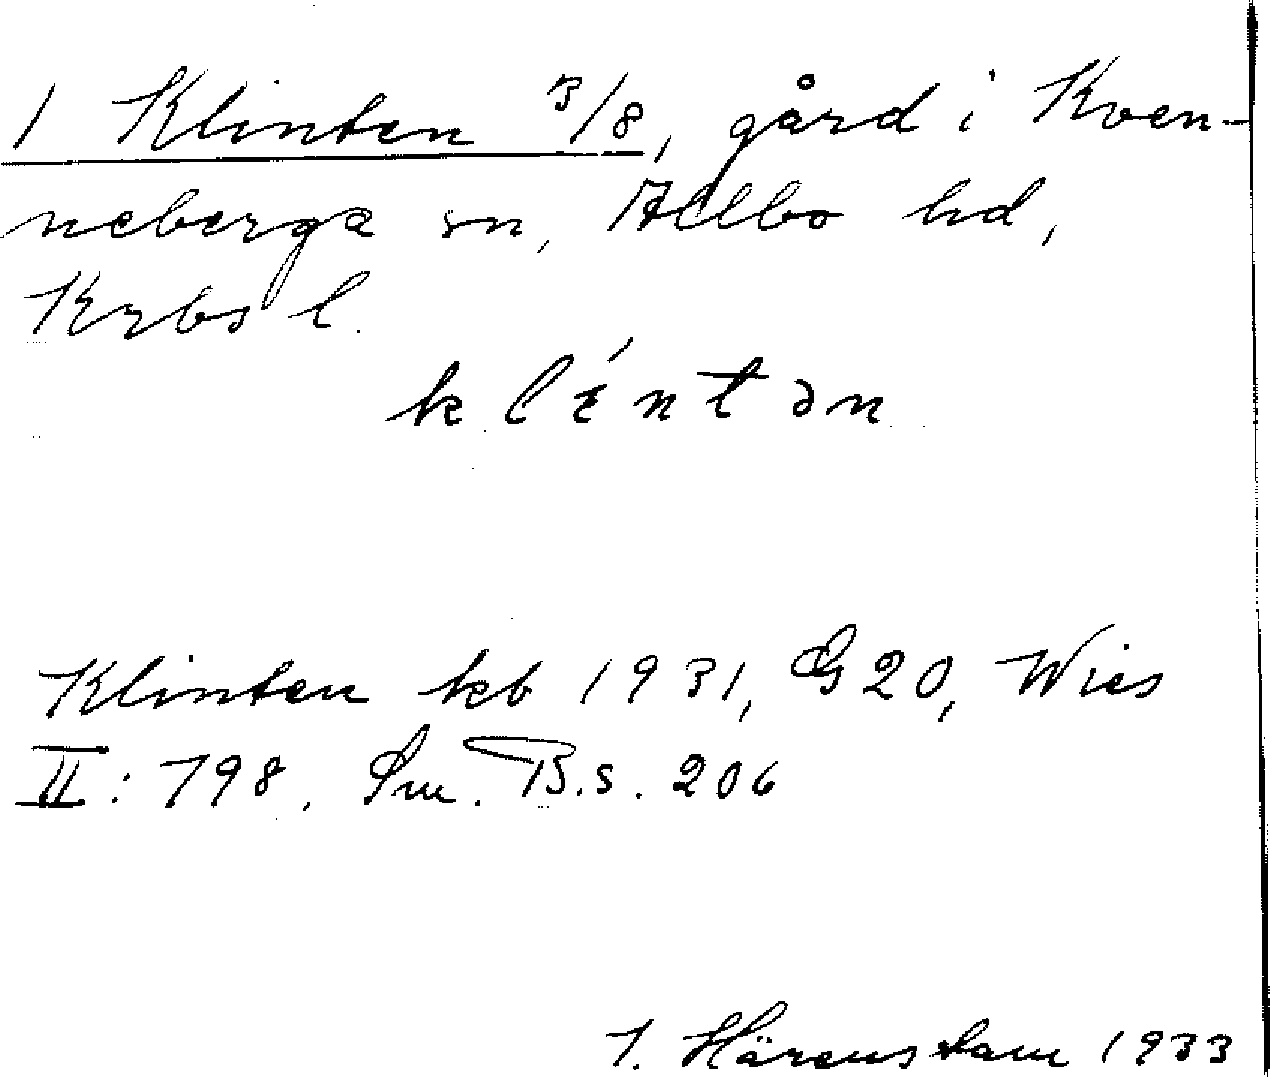 1 Klinten 3/8, gård i Kven-
neberga sn, Allbo hd,
Krbs l.
kl é n t ə n
Klinten kb 1931, G20, Wies
II: 798. Sm. B.s. 206
J. Härenstam 1933